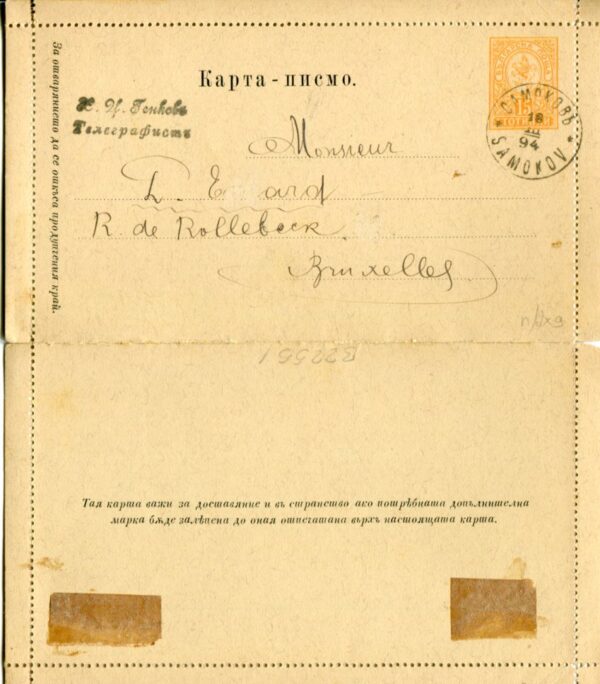 Карта - писмо.
Телеграфистъ
САМОКОВЪ
18
III
94
SAMOKOV
15
Monsieur
R. de Rollebeek
Bruxelles
За отварянието да се откъса продупчения край.
Тая карта важи за доставяние и въ странство ако потрѣбната допълнителна
марка бѫде залѣпена до оная отпечатана върхъ настоящата карта.